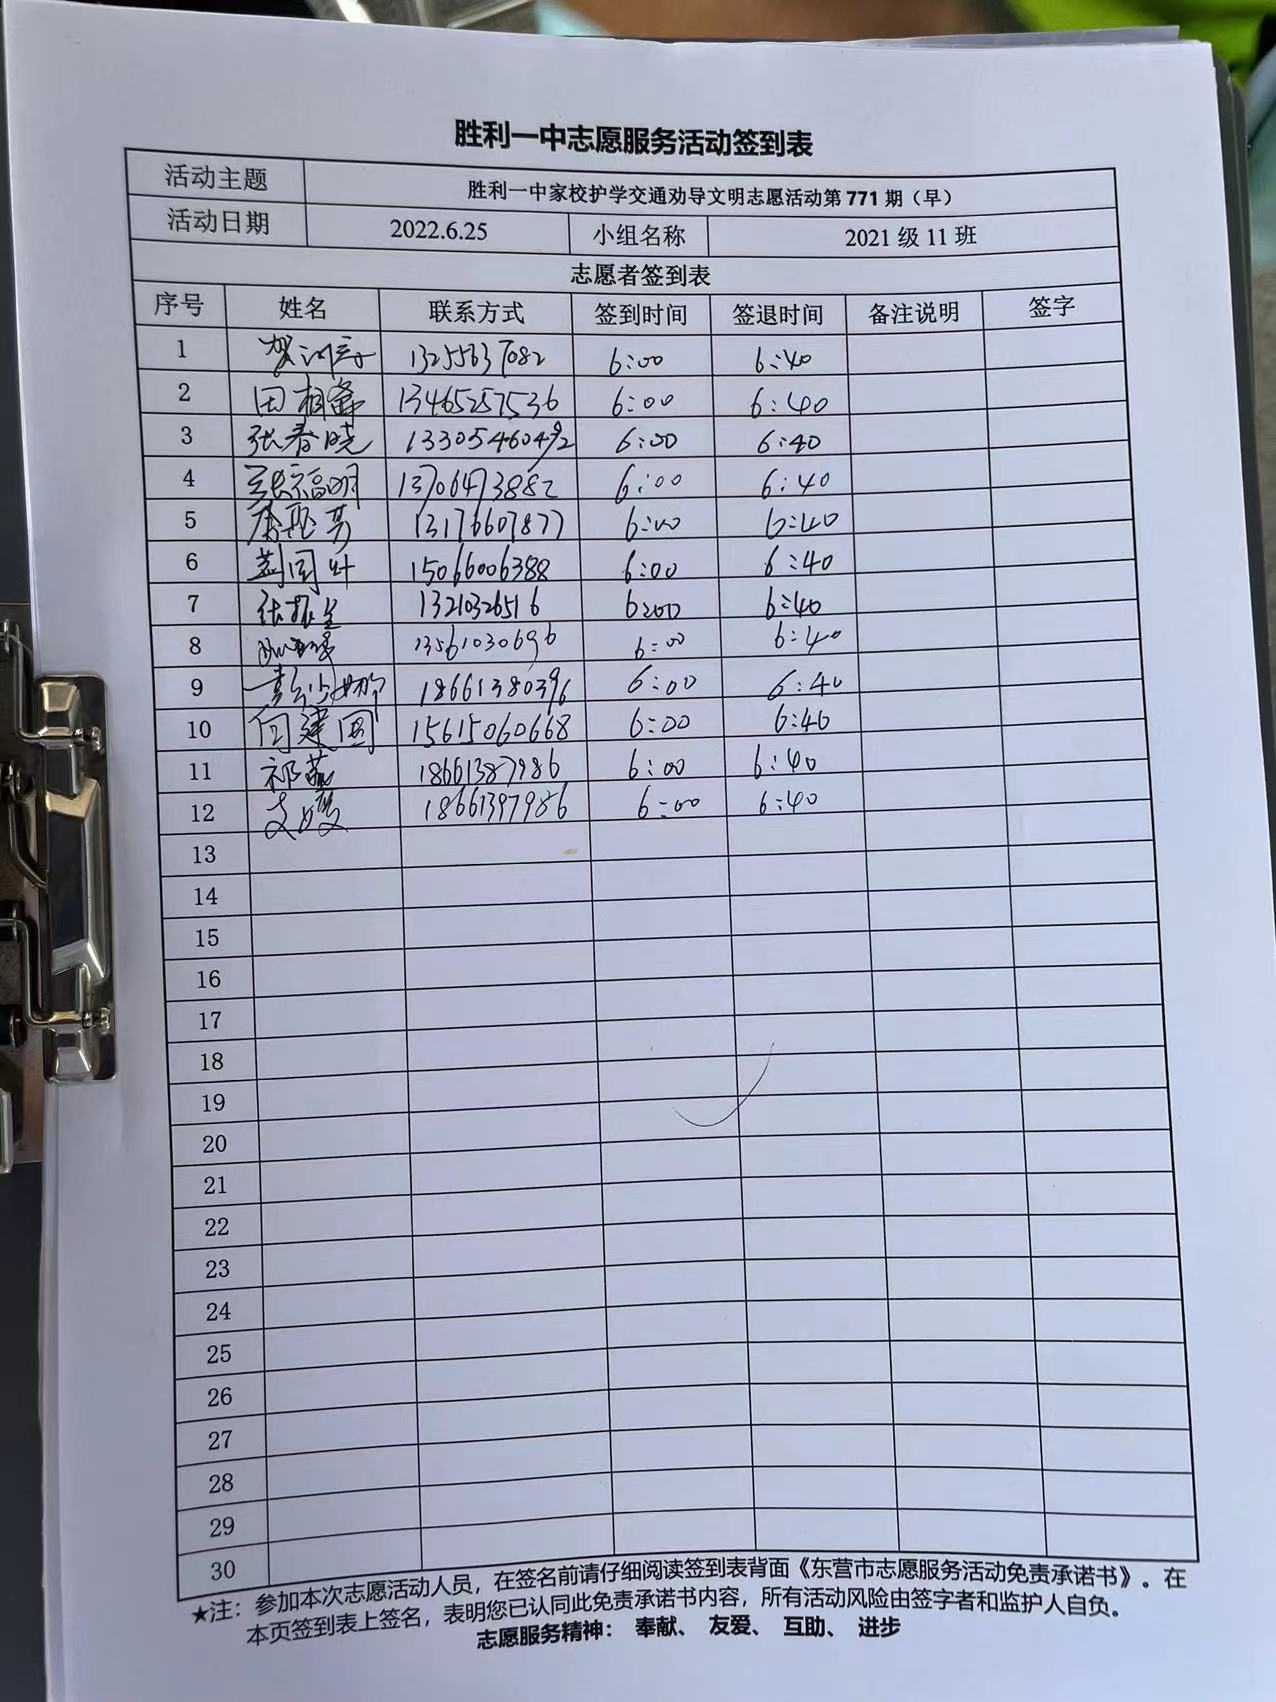 胜利一中志愿服务活动签到表
活动主题 胜利一中家校护学交通劝导文明志愿活动第 771 期（早）
活动日期 2022.6.25 小组名称 2021 级 11 班
志愿者签到表
序号 姓名 联系方式 签到时间 签退时间 备注说明 签字
1 13255637082 6:00 6:40
2 田相 13465257536 6:00 6:40
3 张春晓 13305460492 6:00 6:40
4 张福明 13706473882 6:00 6:40
5 13176607877 6:00 6:40
6 15066006388 6:00 6:40
7 张振 13210326516 6:00 6:40
8 13561030696 6:00 6:40
9 18661380396 6:00 6:40
10 何建国 15615060668 6:00 6:40
11 祁燕 18661387986 6:00 6:40
12 支媛 18661397986 6:00 6:40
13
14
15
16
17
18
19
20
21
22
23
24
25
26
27
28
29
30
★注：参加本次志愿活动人员，在签名前请仔细阅读签到表背面《东营市志愿服务活动免责承诺书》。在
本页签到表上签名，表明您已认同此免责承诺书内容，所有活动风险由签字者和监护人自负。
志愿服务精神： 奉献、 友爱、 互助、 进步